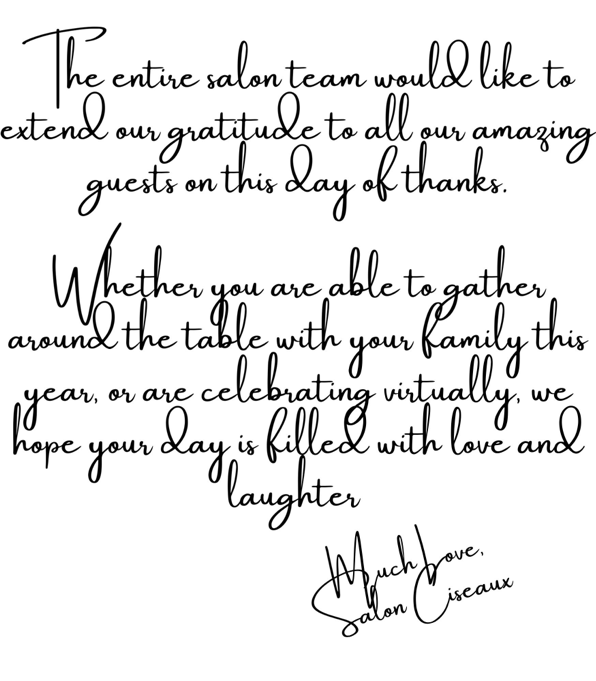 The entire salon team would like to
extend our gratitude to all our amazing
guests on this day of thanks.
Whether you are able to gather
around the table with your family this
year, or are celebrating virtually, we
hope your day is filled with love and
laughter
Much Love,
Salon Ciseaux